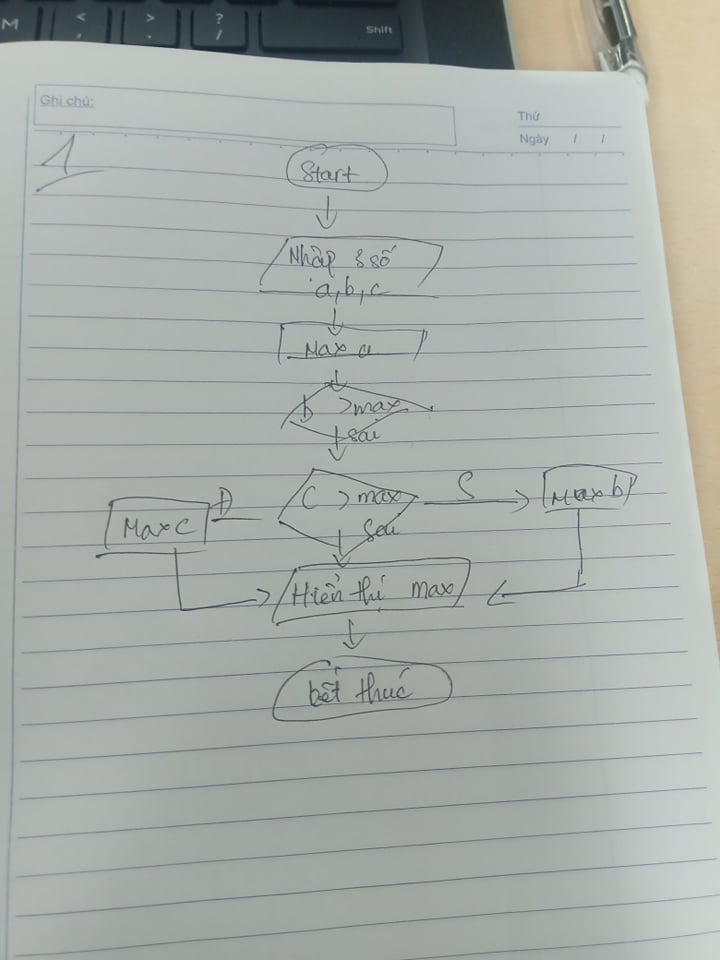 M < , > . ? / Shift
Ghi chú:
Thứ
Ngày / /
1
Start
Nhập 3 số
a, b, c
Max a
b > max
sai
C > max
Đ
S
Max c
Max b
sai
Hiển thị max
kết thúc